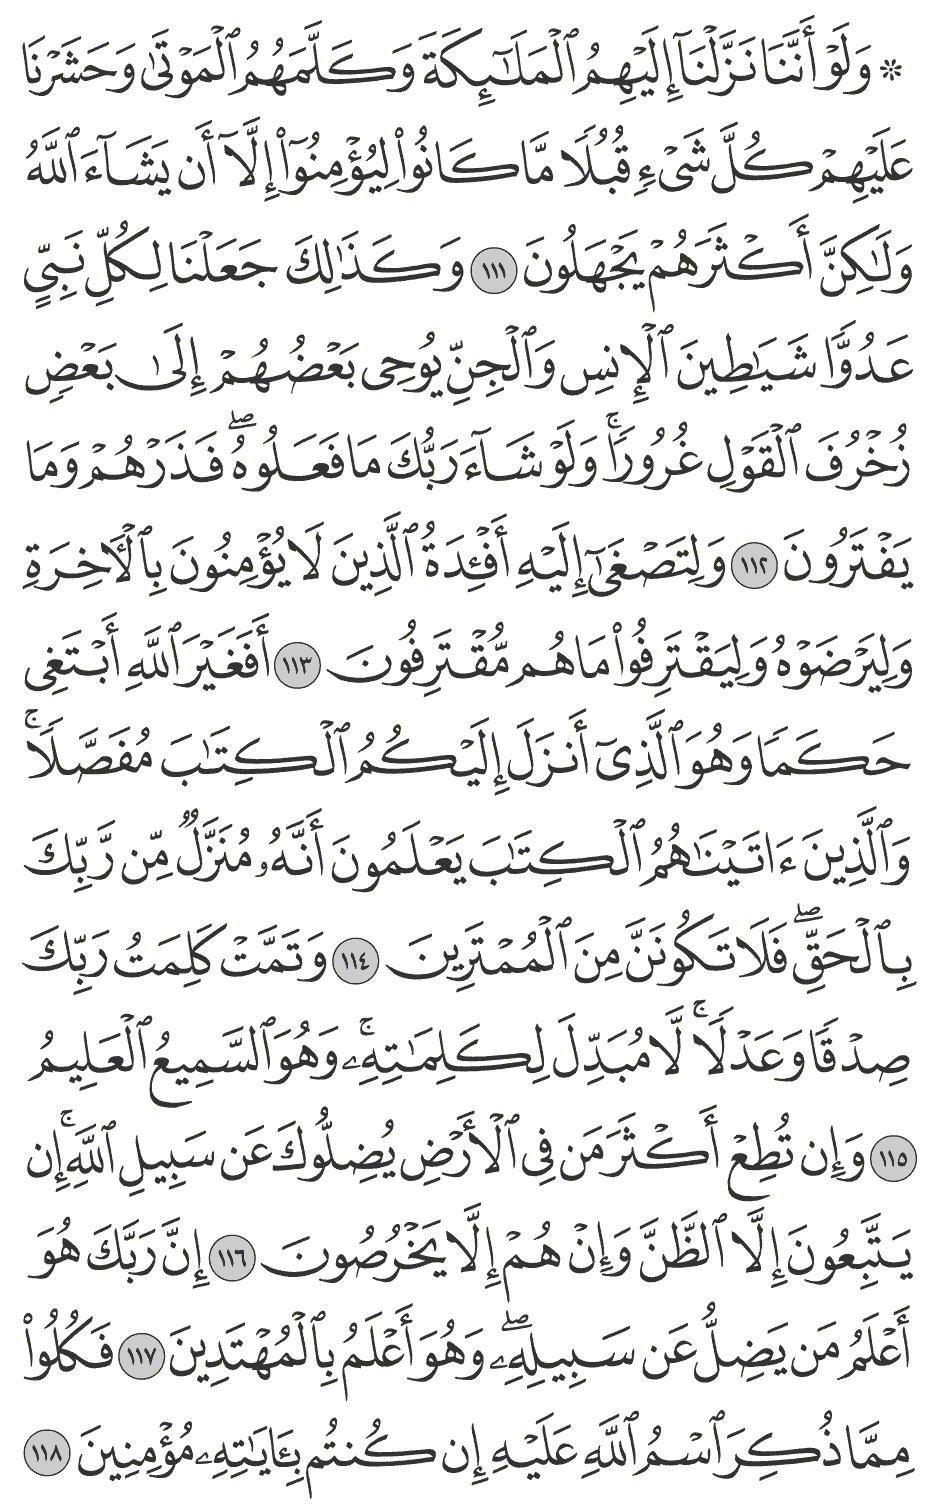 ۞ وَلَوۡ أَنَّنَا نَزَّلۡنَآ إِلَيۡهِمُ ٱلۡمَلَٰٓئِكَةَ وَكَلَّمَهُمُ ٱلۡمَوۡتَىٰ وَحَشَرۡنَا
عَلَيۡهِمۡ كُلَّ شَيۡءٖ قُبُلٗا مَّا كَانُواْ لِيُؤۡمِنُوٓاْ إِلَّآ أَن يَشَآءَ ٱللَّهُ
وَلَٰكِنَّ أَكۡثَرَهُمۡ يَجۡهَلُونَ ١١١ وَكَذَٰلِكَ جَعَلۡنَا لِكُلِّ نَبِيٍّ
عَدُوّٗا شَيَٰطِينَ ٱلۡإِنسِ وَٱلۡجِنِّ يُوحِي بَعۡضُهُمۡ إِلَىٰ بَعۡضٖ
زُخۡرُفَ ٱلۡقَوۡلِ غُرُورٗاۚ وَلَوۡ شَآءَ رَبُّكَ مَا فَعَلُوهُۖ فَذَرۡهُمۡ وَمَا
يَفۡتَرُونَ ١١٢ وَلِتَصۡغَىٰٓ إِلَيۡهِ أَفۡـِٔدَةُ ٱلَّذِينَ لَا يُؤۡمِنُونَ بِٱلۡأٓخِرَةِ
وَلِيَرۡضَوۡهُ وَلِيَقۡتَرِفُواْ مَا هُم مُّقۡتَرِفُونَ ١١٣ أَفَغَيۡرَ ٱللَّهِ أَبۡتَغِي
حَكَمٗا وَهُوَ ٱلَّذِيٓ أَنزَلَ إِلَيۡكُمُ ٱلۡكِتَٰبَ مُفَصَّلٗاۚ
وَٱلَّذِينَ ءَاتَيۡنَٰهُمُ ٱلۡكِتَٰبَ يَعۡلَمُونَ أَنَّهُۥ مُنَزَّلٞ مِّن رَّبِّكَ
بِٱلۡحَقِّۖ فَلَا تَكُونَنَّ مِنَ ٱلۡمُمۡتَرِينَ ١١٤ وَتَمَّتۡ كَلِمَتُ رَبِّكَ
صِدۡقٗا وَعَدۡلٗاۚ لَّا مُبَدِّلَ لِكَلِمَٰتِهِۦۚ وَهُوَ ٱلسَّمِيعُ ٱلۡعَلِيمُ
١١٥ وَإِن تُطِعۡ أَكۡثَرَ مَن فِي ٱلۡأَرۡضِ يُضِلُّوكَ عَن سَبِيلِ ٱللَّهِۚ إِن
يَتَّبِعُونَ إِلَّا ٱلظَّنَّ وَإِنۡ هُمۡ إِلَّا يَخۡرُصُونَ ١١٦ إِنَّ رَبَّكَ هُوَ
أَعۡلَمُ مَن يَضِلُّ عَن سَبِيلِهِۦۖ وَهُوَ أَعۡلَمُ بِٱلۡمُهۡتَدِينَ ١١٧ فَكُلُواْ
مِمَّا ذُكِرَ ٱسۡمُ ٱللَّهِ عَلَيۡهِ إِن كُنتُم بِـَٔايَٰتِهِۦ مُؤۡمِنِينَ ١١٨